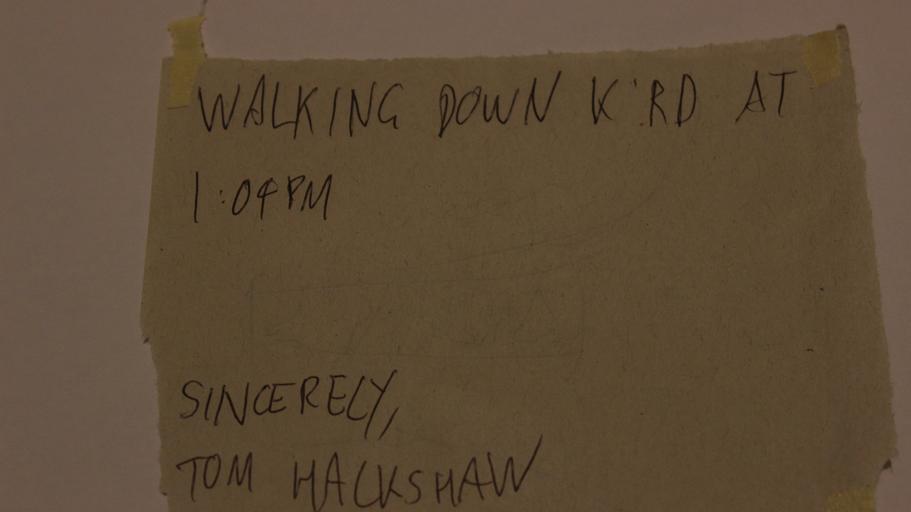 WALKING DOWN K'RD AT
1:04PM
SINCERELY,
TOM HACKSHAW